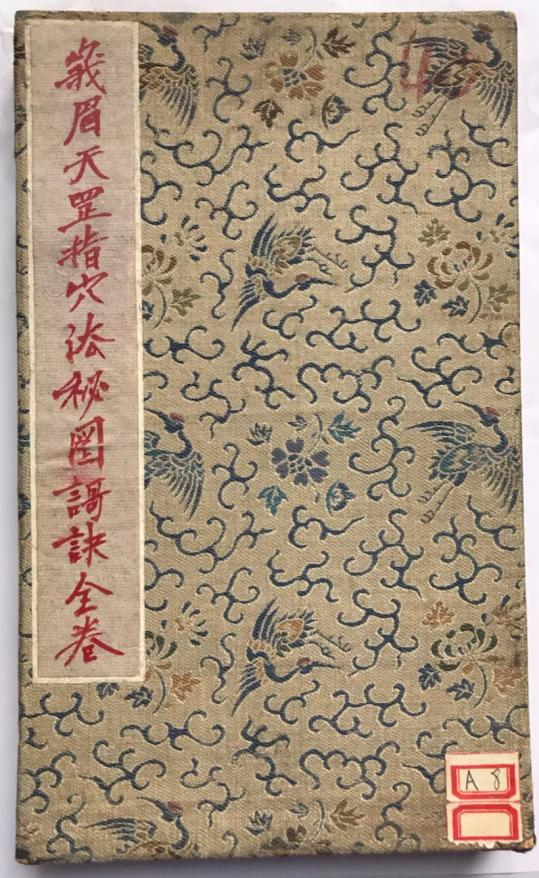 峩眉天罡指穴法秘图謌訣全卷
A 8